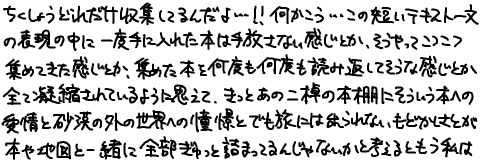 ちくしょうどれだけ収集してるんだよ…!! 何かこう…この短いテキスト一文
の表現の中に一度手に入れた本は手放さない感じとか、そうやってコツコツ
集めてきた感じとか、集めた本を何度も何度も読み返してそうな感じとか
全て凝縮されているように思えて、きっとあの二棹の本棚にそういう本への
愛情と砂漠の外の世界への憧憬とでも旅には出られない、もどかしさとが
本や地図と一緒に全部ぎゅっと詰まってるんじゃないかと考えるともう私は